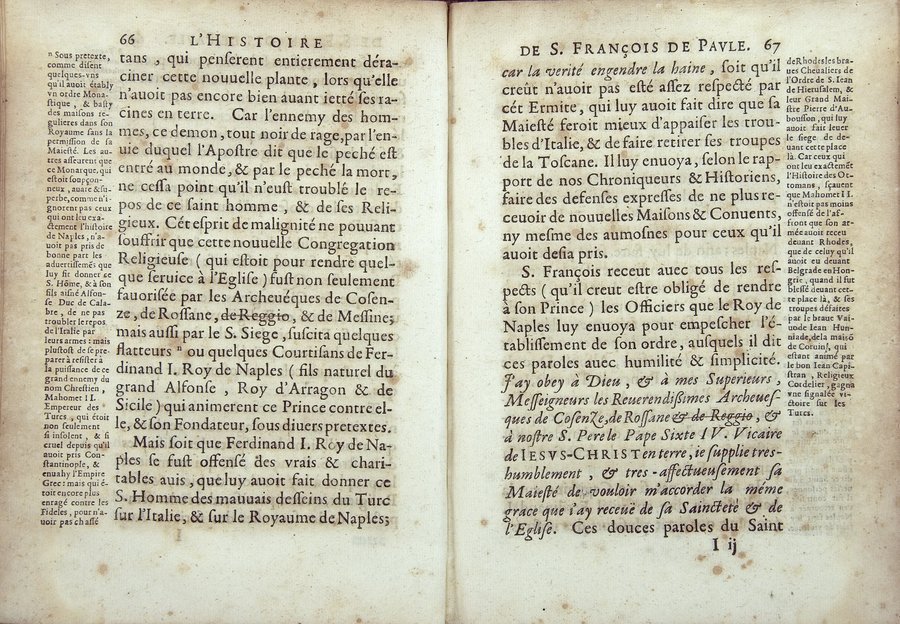 66 L'HISTOIRE
ⁿ Sous pretexte,
comme disent
quelques-vns
qu'il auoit estably
vn ordre Monastique
, & basty
des maisons regulieres
dans son
Royaume sans la
permission de sa
Maiesté. Les autres
asseurent que
ce Monarque, qui
estoit soupçonneux
, auare & superbe,
comme n'ignorent
pas ceux
qui ont leu exactement
l'histoire
de Naples, n'auoit
pas pris de
bonne part les
aduertissemẽs que
luy fit donner ce
S. Hõme, & à son
fils aisné Alfonse
Duc de Calabre
, de ne pas
troubler le repos
de l'Italie par
leurs armes : mais
plustost de se preparer
à resister à
la puissance de ce
grand ennemy du
nom Chrestien,
Mahomet II.
Empereur des
Turcs, qui étoit
non seulement
si insolent, & si
cruel depuis qu'il
auoit pris Constantinople,
&
enuahy l'Empire
Grec : mais qui étoit
encore plus
enragé contre les
Fideles, pour n'auoir
pas chassé
tans, qui penserent entierement déra-
ciner cette nouuelle plante, lors qu'elle
n'auoit pas encore bien auant ietté ses ra-
cines en terre. Car l'ennemy des hom-
mes, ce demon, tout noir de rage, par l'en-
uie duquel l'Apostre dit que le peché est
entré au monde, & par le peché la mort,
ne cessa point qu'il n'eust troublé le re-
pos de ce saint homme, & de ses Reli-
gieux. Cét esprit de malignité ne pouuant
souffrir que cette nouuelle Congregation
Religieuse ( qui estoit pour rendre quel-
que seruice à l'Eglise ) fust non seulement
fauorisée par les Archeuéques de Cosen-
ze, de Rossane, de Reggio, & de Messine;
mais aussi par le S. Siege, suscita quelques
flatteurs ⁿ ou quelques Courtisans de Fer-
dinand I. Roy de Naples ( fils naturel du
grand Alfonse, Roy d'Arragon & de
Sicile ) qui animerent ce Prince contre el-
le, & son Fondateur, sous diuers pretextes.
Mais soit que Ferdinand I. Roy de Na-
ples se fust offensé des vrais & chari-
tables auis, que luy auoit fait donner ce
S. Homme des mauuais desseins du Turc
sur l'Italie, & sur le Royaume de Naples;
I
DE S. FRANÇOIS DE PAVLE. 67
car la verité engendre la haine, soit qu'il
creût n'auoir pas esté assez respecté par
cét Ermite, qui luy auoit fait dire que sa
Maiesté feroit mieux d'appaiser les trou-
bles d'Italie, & de faire retirer ses troupes
de la Toscane. Il luy enuoya, selon le rap-
port de nos Chroniqueurs & Historiens,
faire des defenses expresses de ne plus re-
ceuoir de nouuelles Maisons & Conuents,
ny mesme des aumosnes pour ceux qu'il
auoit desia pris.
S. François receut auec tous les res-
pects ( qu'il creut estre obligé de rendre
à son Prince ) les Officiers que le Roy de
Naples luy enuoya pour empescher l'é-
tablissement de son ordre, ausquels il dit
ces paroles auec humilité & simplicité.
J'ay obey à Dieu, & à mes Superieurs,
Messeigneurs les Reuerendissimes Archeues-
ques de Cosenze, de Rossane & de Reggio, &
à nostre S. Pere le Pape Sixte IV. Vicaire
de IESVS-CHRIST en terre, ie supplie tres-
humblement, & tres-affectueusement sa
Maiesté de vouloir m'accorder la méme
grace que i'ay receuë de sa Saincteté & de
l'Eglise. Ces douces paroles du Saint
I ij
de Rhodes les braues
Cheualiers de
l'Ordre de S. Iean
de Hierusalem, &
leur Grand Maistre
Pierre d'Aubousson,
qui luy
auoit fait leuer
le siege de deuant
cette place
là. Car ceux qui
ont leu exactemẽt
l'Histoire des Ottomans
, sçauent
que Mahomet II.
n'estoit pas moins
offensé de l'affront
que son armée
auoit receu
deuant Rhodes,
que de celuy qu'il
auoit eu deuant
Belgrade en Hongrie
, quand il fut
blessé deuant cette
place là, & ses
troupes défaites
par le braue Vaiuode
Iean Huniade,
de la maisõ
de Coruin, qui
estant animé par
le bon Iean Capistran
, Religieux
Cordelier, gagna
vne signalée victoire
sur les
Turcs.